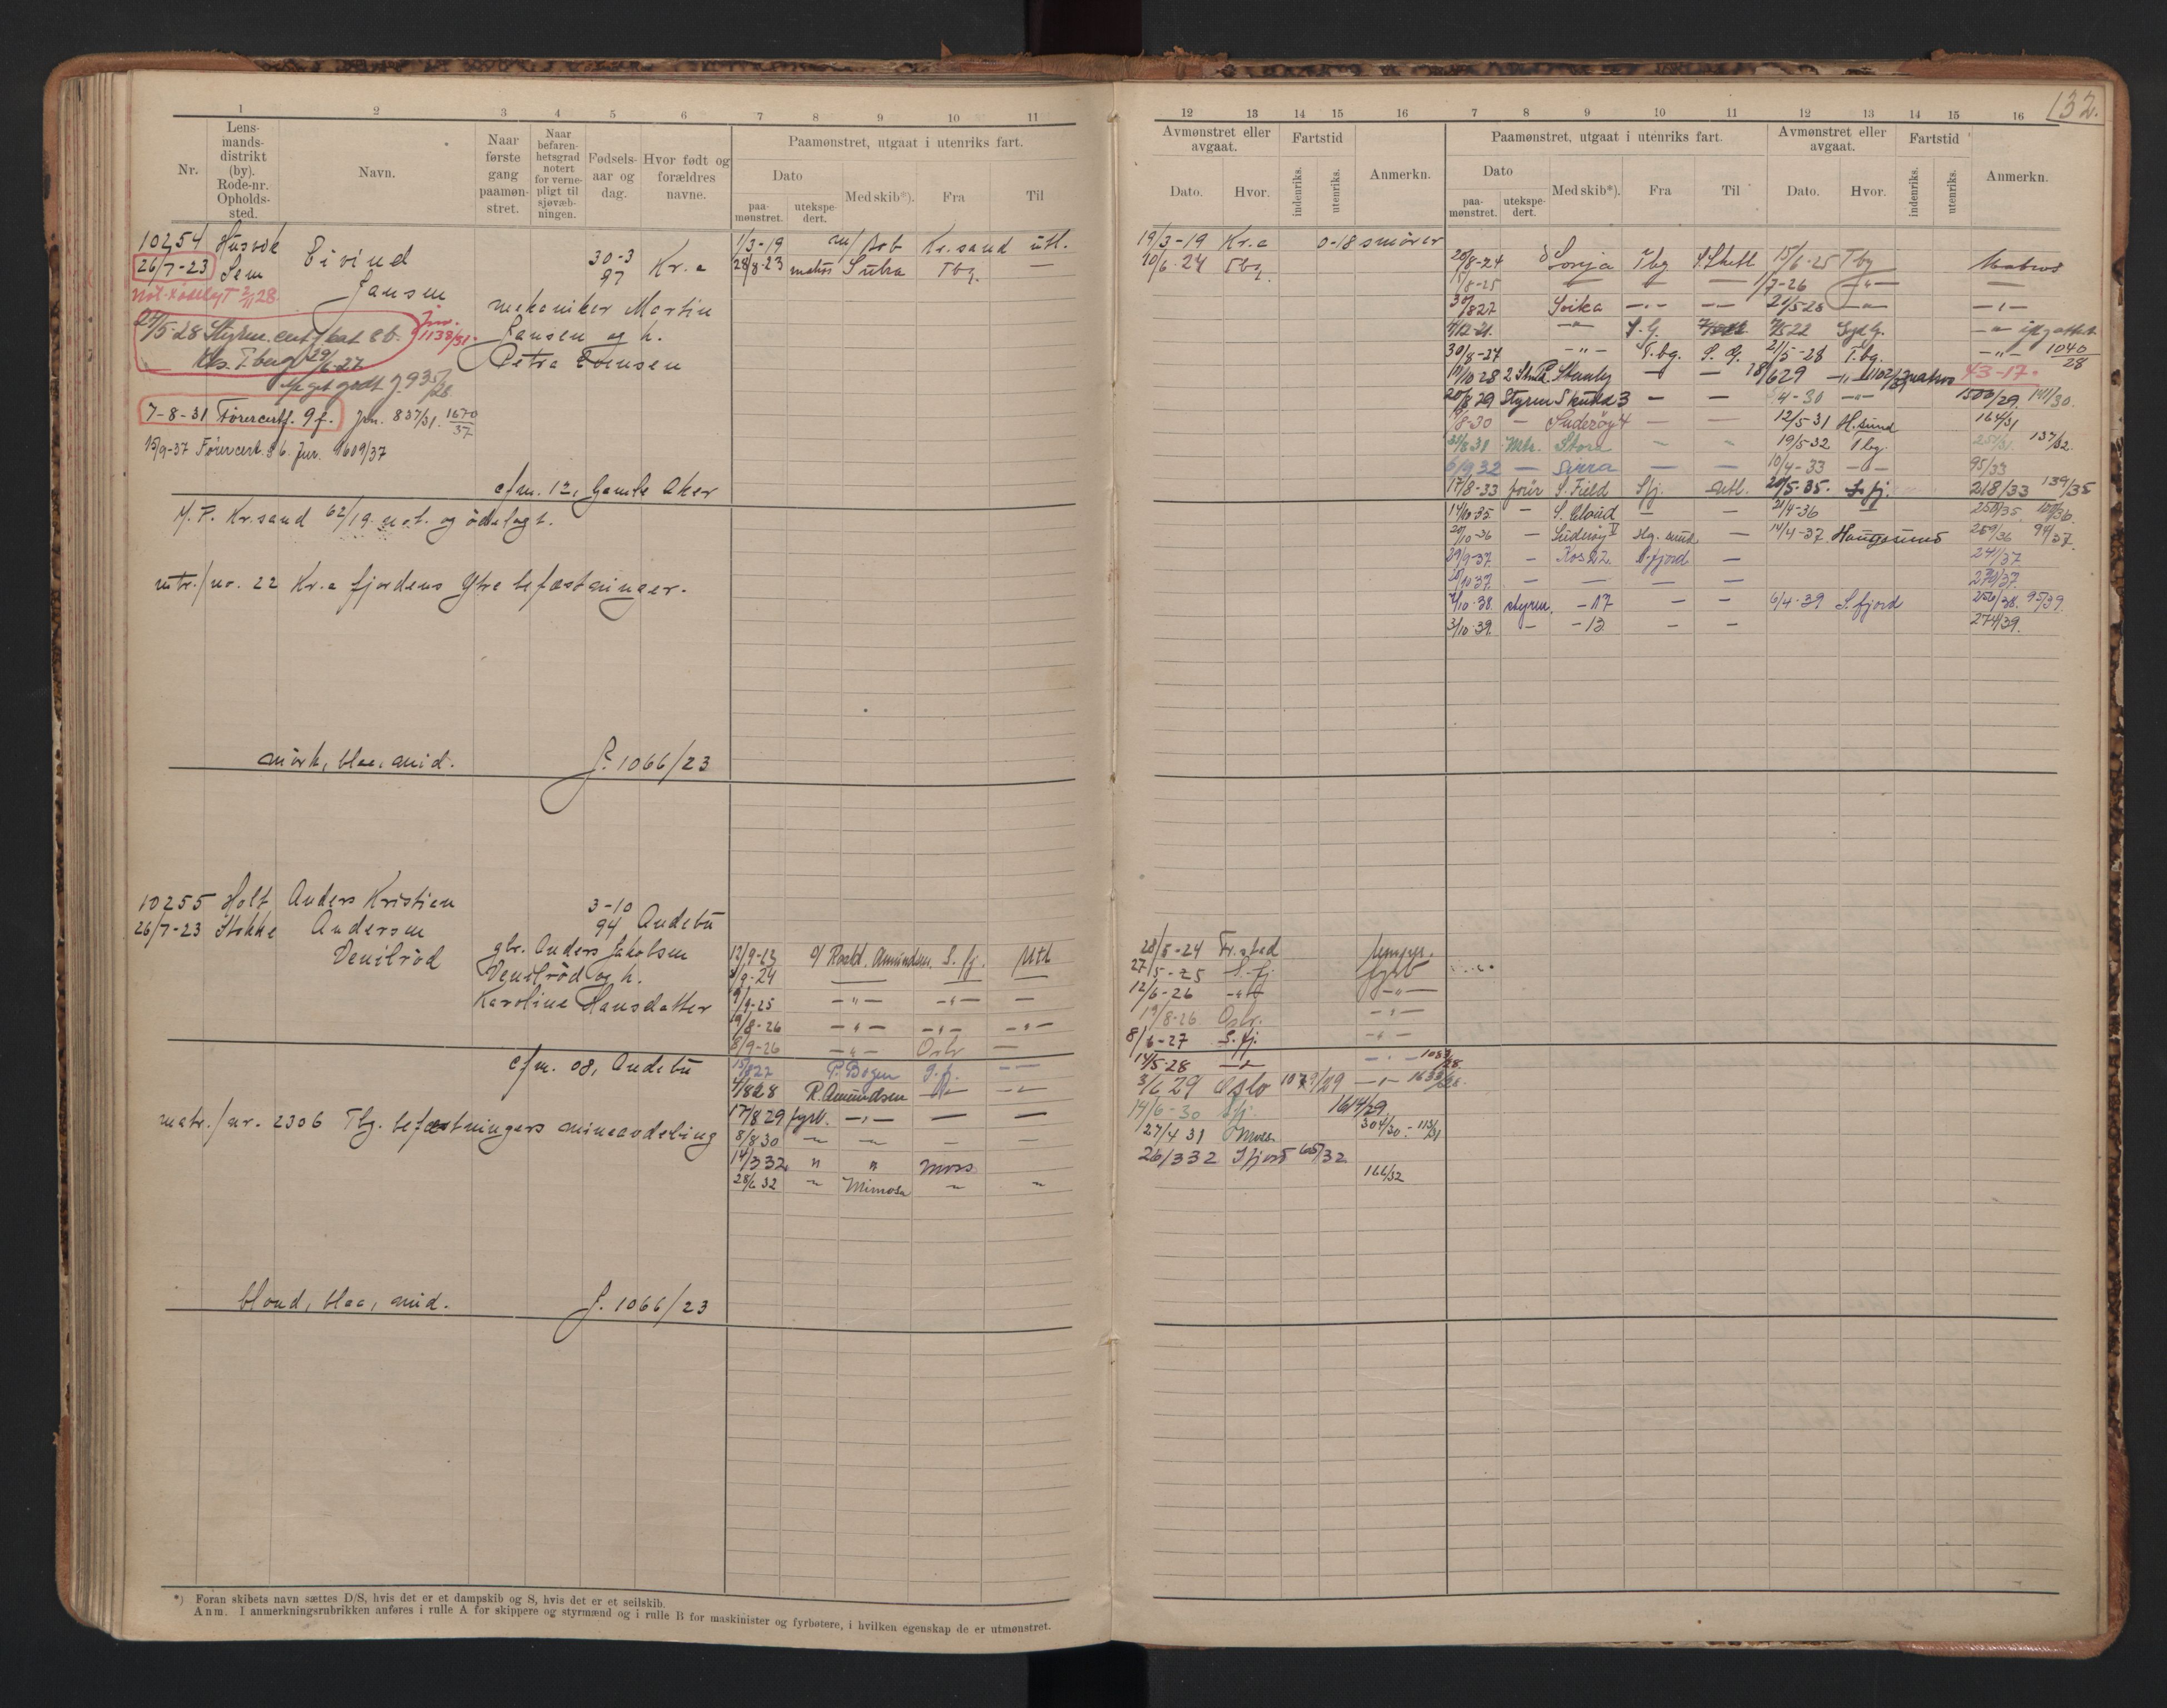 132.
1 2 3 4 5 6 7 8 9 10 11
Nr.
Lens-
mands-
distrikt
(by).
Rode-nr.
Opholds-
sted.
Navn.
Naar
første
gang
paamøn-
stret.
Naar
befaren-
hetsgrad
notert
for verne-
pligt til
sjøvæb-
ningen.
Fødsels-
aar og
dag.
Hvor født og
forældres
navne.
Paamønstret, utgaat i utenriks fart.
Dato
paa-
mønstret.
utekspe-
dert.
Med skib*).
Fra
Til
10254 Husvik Eivind 30-3 Kr.a 1/3-19 Arb Kr.sand utl.
26/7-23 Sem Jansen 97 28/8-23 matros Sutra Tbg. —
mekaniker Martin
Jansen og h.
Petra Evensen
27/5-28 Styrm.
Jnr. 1138/31.
Tberg 29/6-27
Meget godt J. 935/28
7-8-31 Førercertf. 9 f. Jrn. 837/31. 1670/37
15/9-37 Førercert. § 6. Jnr. 1609/37
cfm. 12, Gamle Aker
M.P. Kr.sand 62/19 not. og ødelagt.
mtr./nr. 22 Kr.a fjordens Ytre befæstninger.
mörk, blaa, mid. J. 1066/23
10255 Holt Anders Kristien 3-10 Andebu
26/7-23 Stokke Andersen 94
Venilröd gbr. Anders Jakobsen 12/9-23 Roald Amundsen S. fj. Utl
Venilröd og h. 9-24 — — —
Karoline Hansdatter 9/9-25 —"— —"— —
19/8-26 —"— —"— —"—
8/9-26 —"— Oslo —
cfm. 08, Andebu 15/8 27 P. Bogen S.f. ——
4/8 28 R. Amundsen — —
17/8 29 fyrb. —"— — —
matr./nr. 2306 Tbg. befæstningers mineavdeling 8/8 30 — — — —
14/3 32 " " Moss
28/6 32 — Mimosa — —
blond, blaa, mid. J. 1066/23
*) Foran skibets navn sættes D/S, hvis det er et dampskib og S, hvis det er et seilskib.
Anm. I anmerkningsrubrikken anføres i rulle A for skippere og styrmænd og i rulle B for maskinister og fyrbøtere, i hvilken egenskap de er utmønstret.
12 13 14 15 16 7 8 9 10 11 12 13 14 15 16
Avmønstret eller
avgaat.
Fartstid
Dato.
Hvor.
indenriks.
utenriks.
Anmerkn.
Paamønstret, utgaat i utenriks fart.
Dato
paa-
mønstret.
utekspe-
dert.
Med skib*).
Fra
Til
Avmønstret eller
avgaat.
Dato.
Hvor.
Fartstid
indenriks.
utenriks.
Anmerkn.
19/3-19 Kr.a 0-18 smörer
10/6-24 Tbg.
20/8-24 Sonja Tbg S.Shetl 15/6-25 Tbg Matros
15/8-25 — — — 1/7-26 —"— —
30/8 27 Svika —"— —"— 21/5-28 —"— —"—
4/12-21 —"— S.G. 7/5 22 Syd G.
30/8-27 —"— T.bg. S. G. 21/5-28 T.bg. —"— 1040/28
10/10 28 — — 18/6 29 —"— matros 43-17.
20/8 29 Styrm Skudd 3 — — 4-30 —"— 1500/29. 141/30.
8-30 — Suderøy 4 — — 12/5 31 H.sund 164/31
31/8 31 Mtr. Stora — — 19/5-32 Tbg 137/32.
6/9 32 — Sirra — — 10/4-33 —"— 95/33
17/8-33 S. Field Sfj. Utl. 20/5-35. S.fj. 218/33 139/35
14/10-35 — — — 21/4-36 — 250/35.
20/10-36 — Suderøy V Hg. sund — 14/4-37 Haugesund 259/36 94/37.
29/9-37 — Kos 22 S.fjord — 241/37
10 37 — — — — 270/37
7/10-38. styrm. —17 — — 6/4-39 S.fjord 256/38. 95/39.
3/10-39. — —13 — — 274/39.
28/5-24 Fr.stad
27/5-25 S. fj. fyrb
12/6-26 —"— —"—
19/8-26 Oslo. —"—
8/6-27 S. fj. —"—
14/5-28 —"— —"—
3/6 29 Oslo —"—
14/6-30 Sfj. 1614/29.
27/4 31 Moss 304/30.
26/3 32 Sfjord
166/32